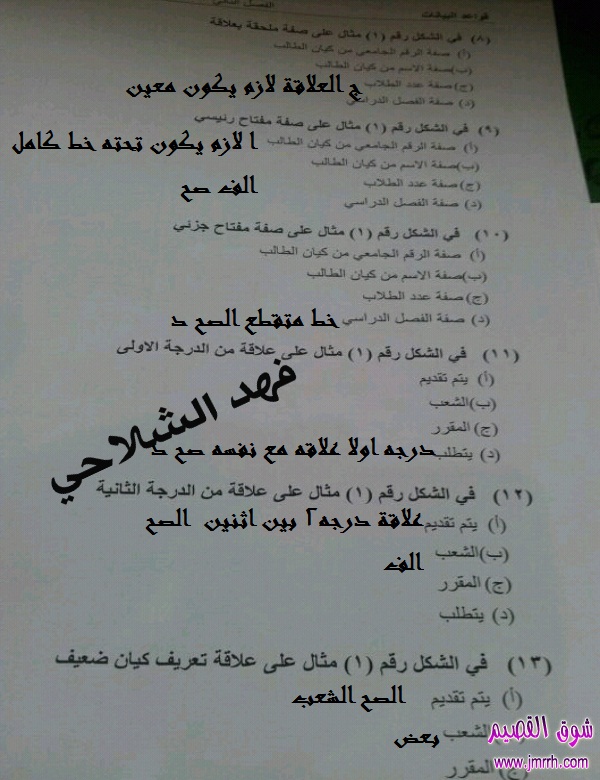 قواعد البيانات
الفصل الثاني
(٨) في الشكل رقم (١) مثال على صفة ملحقة بعلاقة
(أ) صفة الرقم الجامعي من كيان الطالب
(ب)صفة الاسم من كيان الطالب
(ج) صفة عدد الطلاب ج العلاقة لازم يكون معين
(د) صفة الفصل الدراسي
(٩) في الشكل رقم (١) مثال على صفة مفتاح رئيسي
(أ) صفة الرقم الجامعي من كيان الطالب ا لازم يكون تحته خط كامل
(ب)صفة الاسم من كيان الطالب
(ج) صفة عدد الطلاب الف صح
(د) صفة الفصل الدراسي
(١٠) في الشكل رقم (١) مثال على صفة مفتاح جزئي
(أ) صفة الرقم الجامعي من كيان الطالب
(ب)صفة الاسم من كيان الطالب
(ج) صفة عدد الطلاب
(د) صفة الفصل الدراسي خط متقطع الصح د
(١١) في الشكل رقم (١) مثال على علاقة من الدرجة الاولى
(أ) يتم تقديم
(ب)الشعب
(ج) المقرر
(د) يتطلب درجه اولا علاقه مع نفسه صح د
فهد الشلاحي
(١٢) في الشكل رقم (١) مثال على علاقة من الدرجة الثانية
(أ) يتم تقديم علاقة درجه ٢ بين اثنين الصح
(ب)الشعب الف
(ج) المقرر
(د) يتطلب
(١٣) في الشكل رقم (١) مثال على علاقة تعريف كيان ضعيف
(أ) يتم تقديم الصح الشعب
الشعب بعض
(ج) المقرر
شوق القصيم
www.jmrrh.com